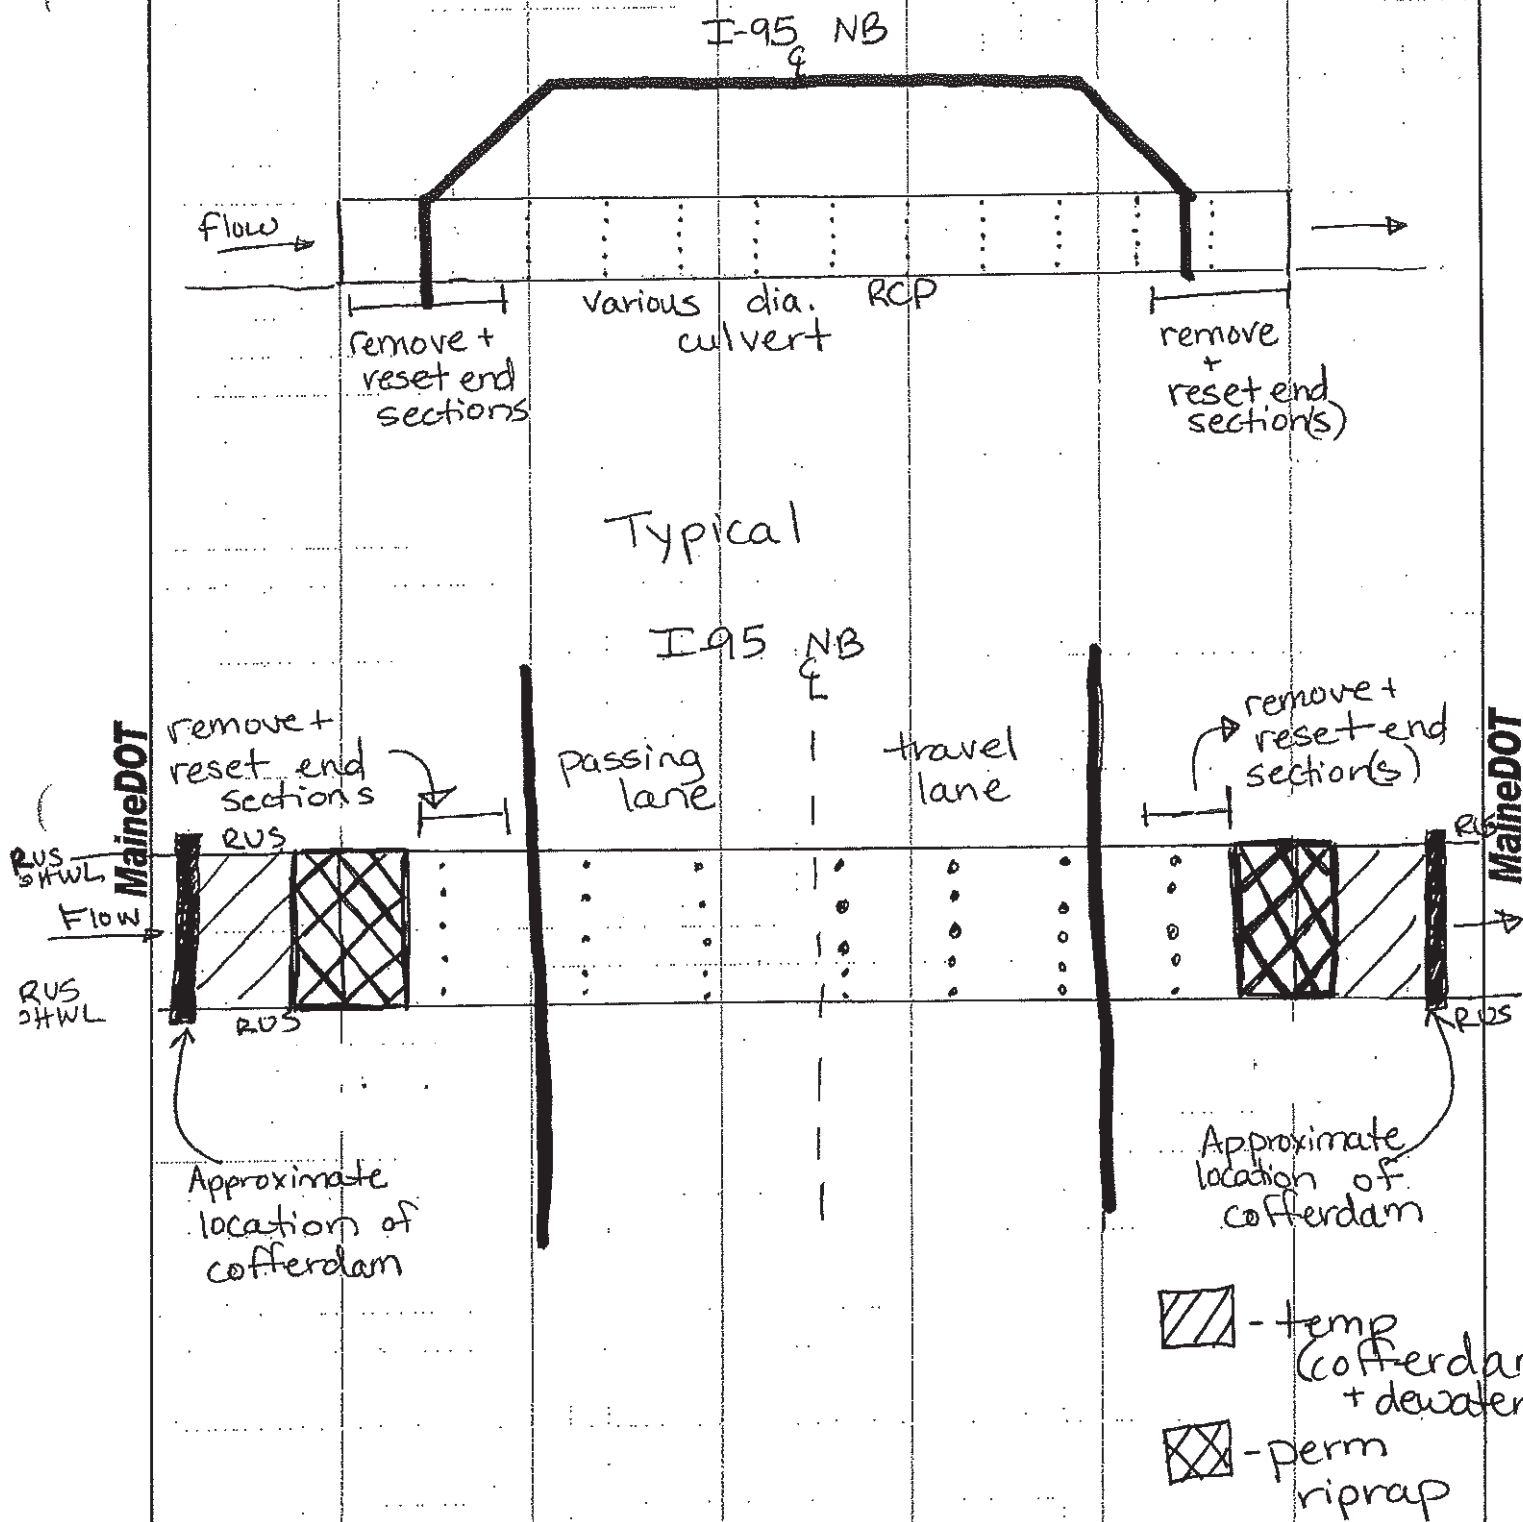 I-95 NB
℄
flow
various dia. RCP
culvert
remove +
reset end
sections
remove
+
reset end
section(s)
Typical
I-95 NB
℄
remove +
reset end
sections
passing
lane
travel
lane
remove +
reset end
section(s)
MaineDOT
MaineDOT
RUS
RUS
RUS
HWL
Flow
RUS
HWL
RUS
RUS
Approximate
location of
cofferdam
Approximate
location of
cofferdam
- temp
(cofferdam
+ dewater
- perm
riprap